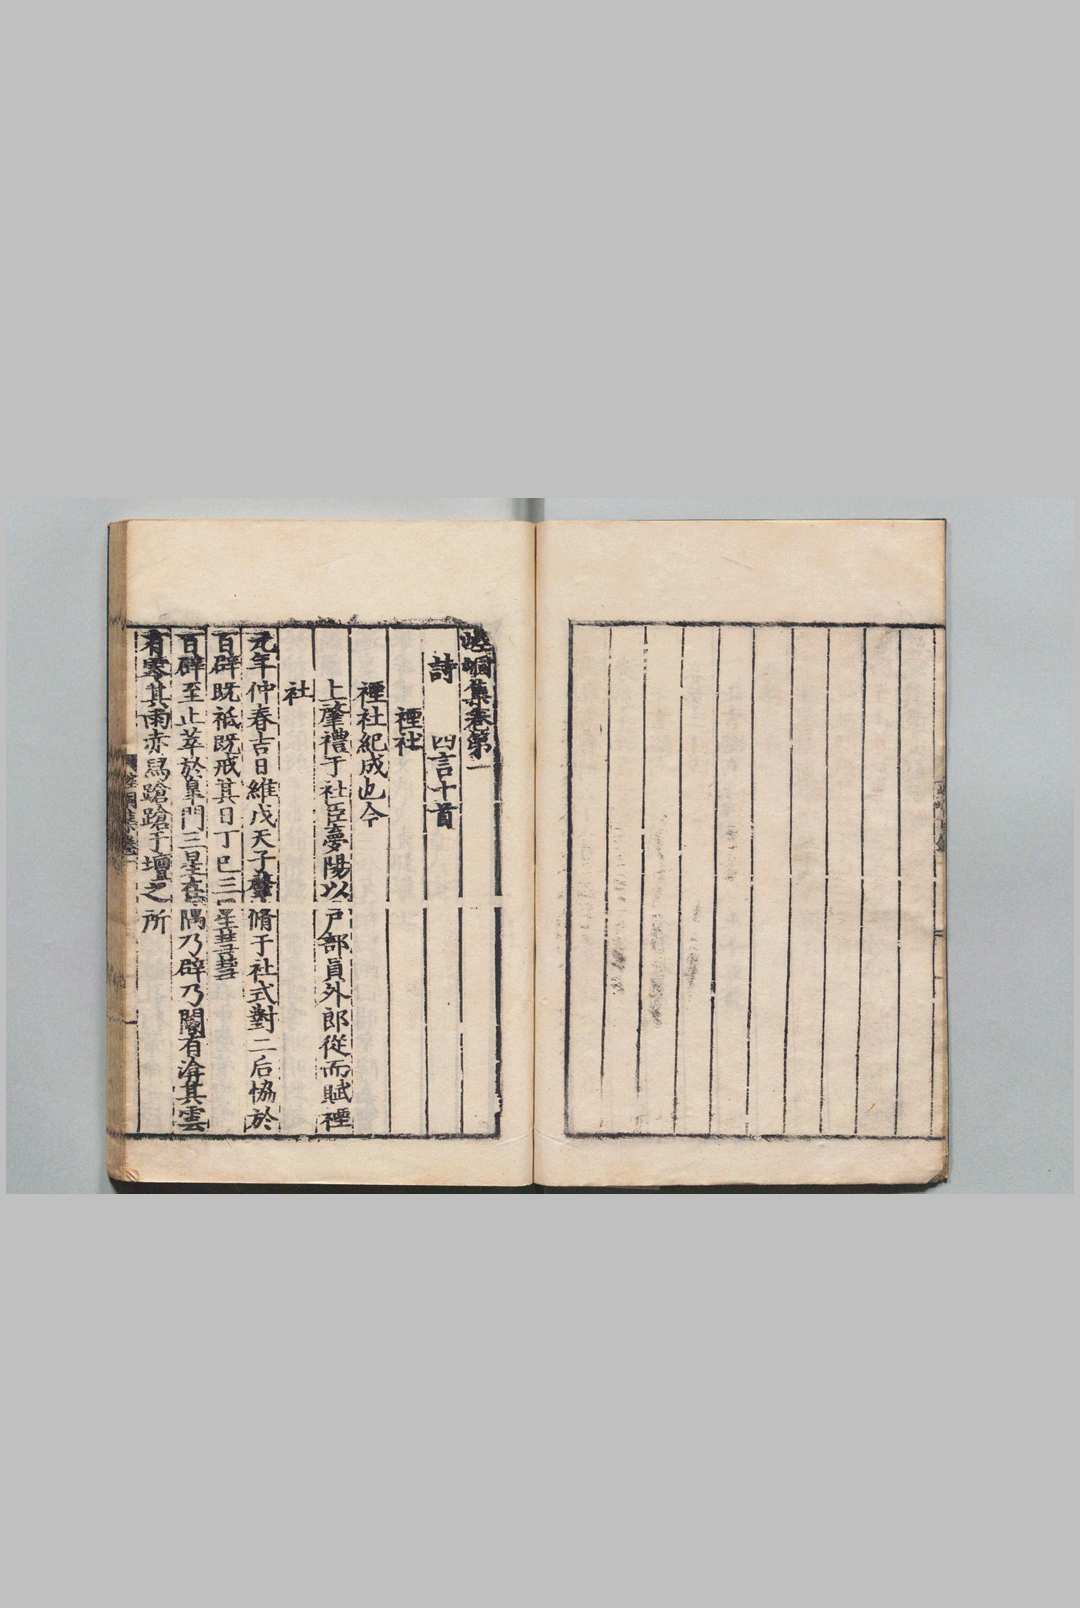 崆峒集卷第一
詩 四言十首
禋社
禋社紀成也今
上肇禮于社臣夢陽以戶部員外郎從而賦禋
社
元年仲春吉日維戊天子肇脩于社式對二后恊於
百辟既祗既戒其日丁巳三星彗彗
百辟至止萃於臯門三星在隅乃辟乃闔有渰其雲
有零其雨赤舄蹌蹌于壇之所
崆峒集卷一